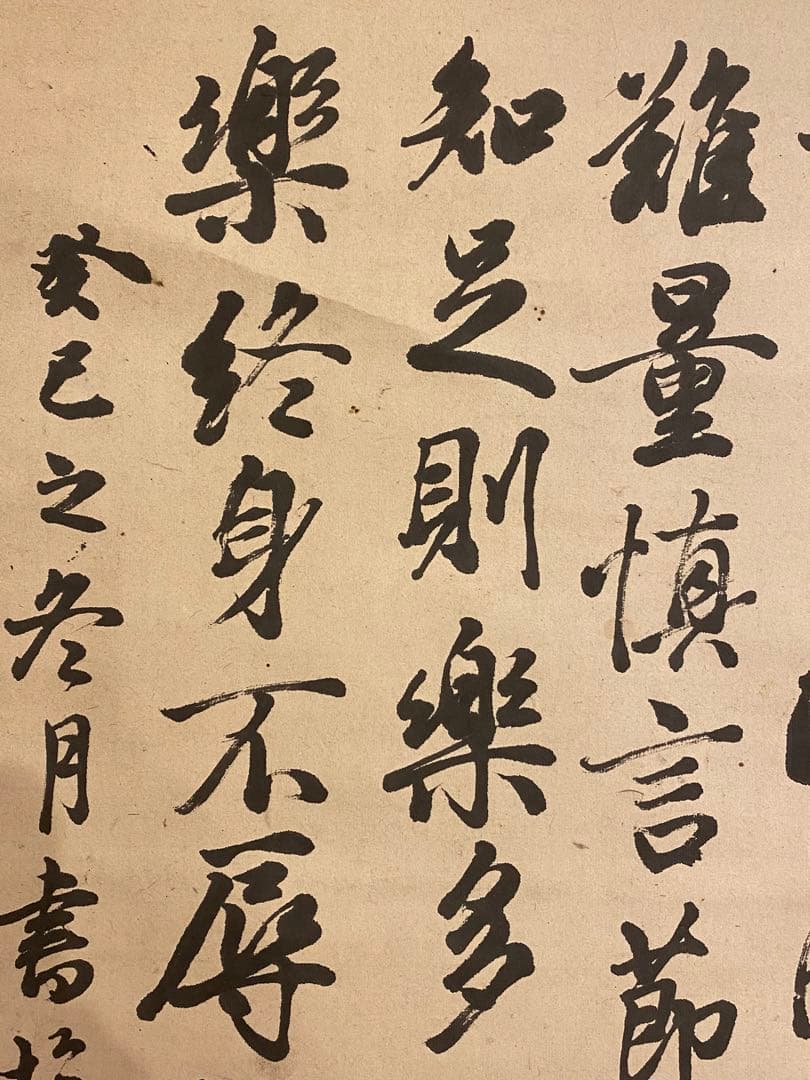 難量慎言節
知足則樂多
樂終身不辱
癸巳之冬月書於